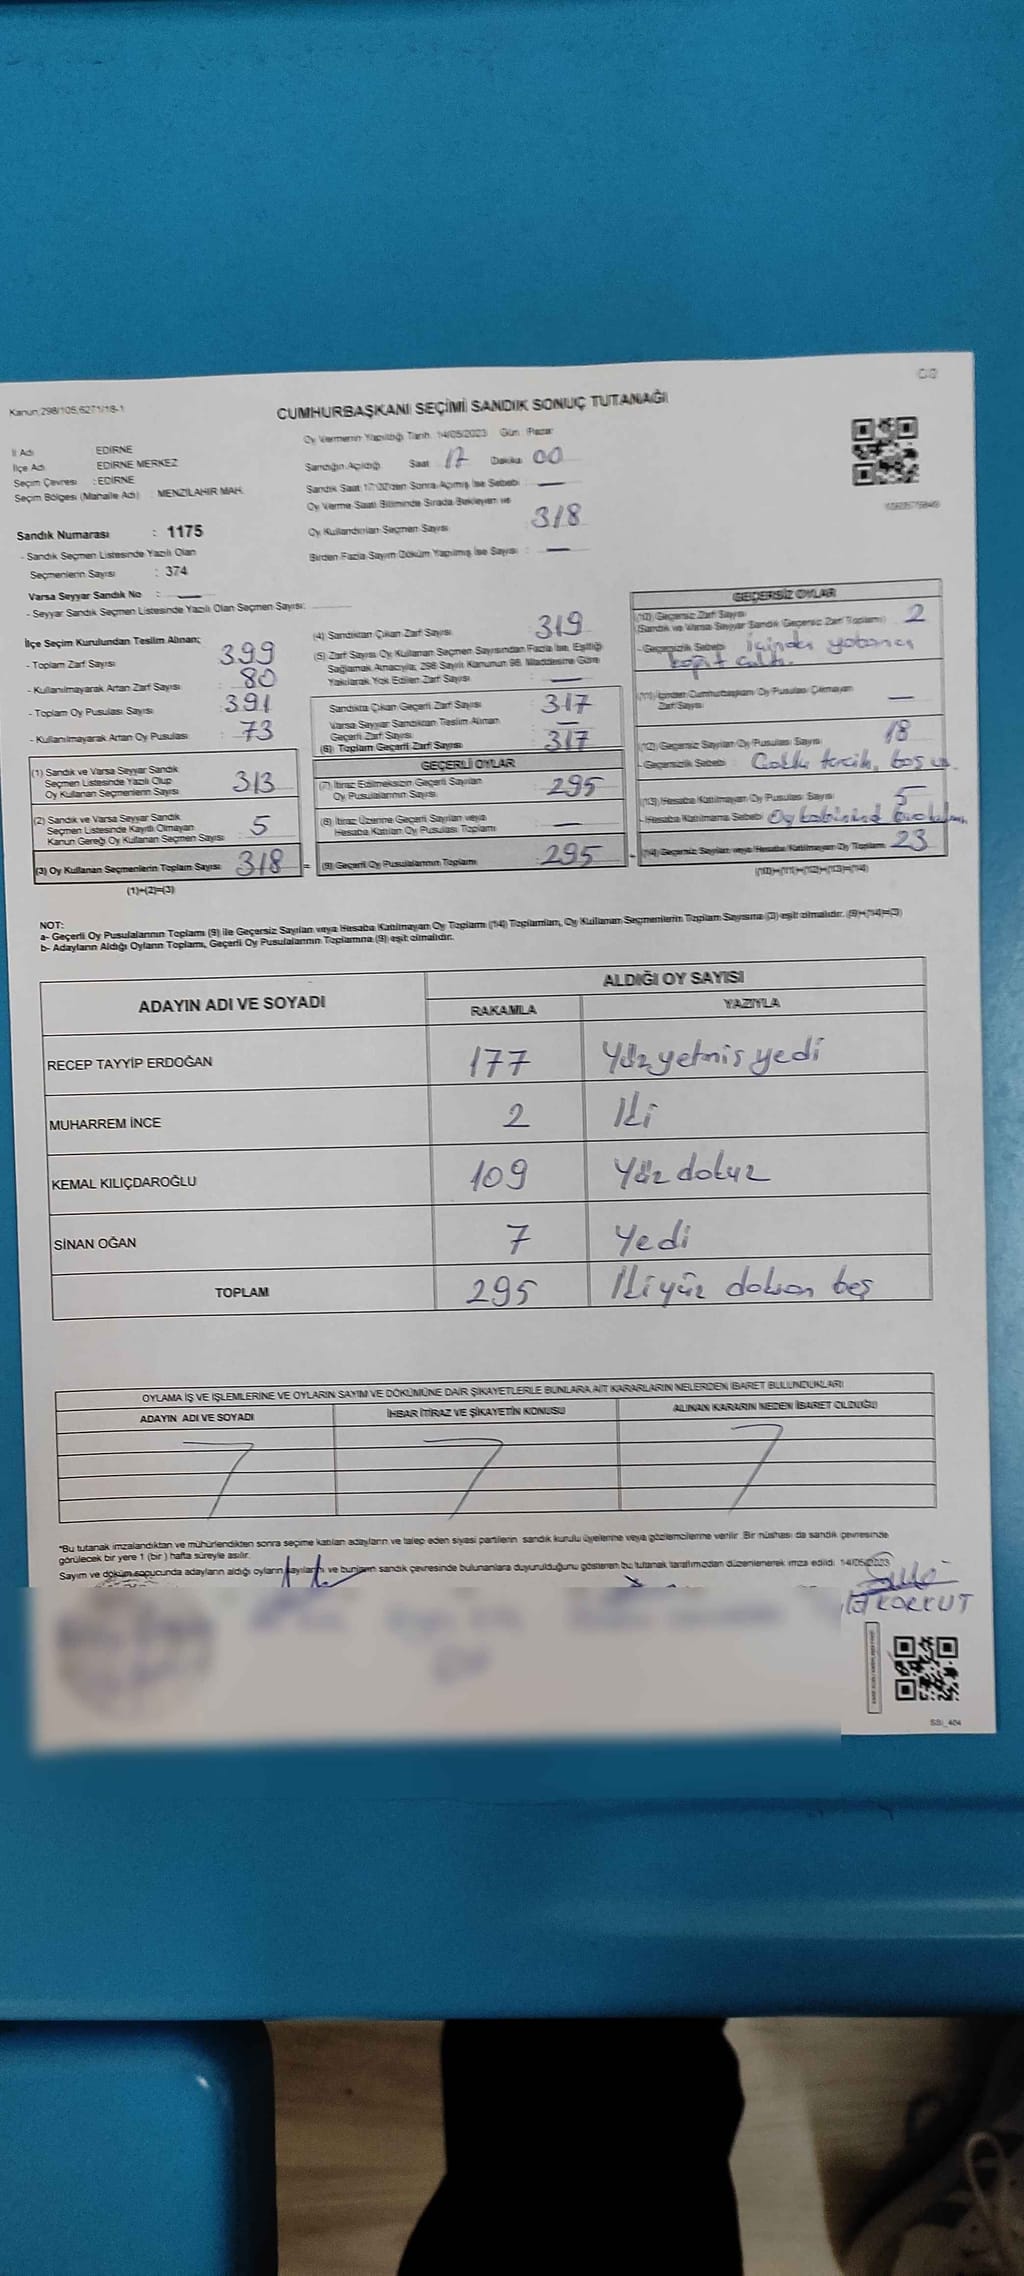 Kanun:298/105,6271/18-1
CUMHURBAŞKANI SEÇİMİ SANDIK SONUÇ TUTANAĞI
İl Adı EDİRNE
İlçe Adı EDİRNE MERKEZ
Seçim Çevresi : EDİRNE
Seçim Bölgesi (Mahalle Adı) : MENZİLAHIR MAH.
Sandık Numarası : 1175
- Sandık Seçmen Listesinde Yazılı Olan
Seçmenlerin Sayısı : 374
Varsa Seyyar Sandık No : —
- Seyyar Sandık Seçmen Listesinde Yazılı Olan Seçmen Sayısı:
Oy Vermenin Yapıldığı Tarih: 14/05/2023 Gün: Pazar
Sandığın Açıldığı Saat 17 Dakika 00
Sandık Saat 17:00'den Sonra Açılmış İse Sebebi : —
Oy Verme Saati Bitiminde Sırada Bekleyen ve
Oy Kullandırılan Seçmen Sayısı 318
Birden Fazla Sayım Döküm Yapılmış İse Sayısı : —
İlçe Seçim Kurulundan Teslim Alınan;
- Toplam Zarf Sayısı : 399
- Kullanılmayarak Artan Zarf Sayısı : 80
- Toplam Oy Pusulası Sayısı : 391
- Kullanılmayarak Artan Oy Pusulası : 73
(1) Sandık ve Varsa Seyyar Sandık
Seçmen Listesinde Yazılı Olup
Oy Kullanan Seçmenlerin Sayısı 313
(2) Sandık ve Varsa Seyyar Sandık
Seçmen Listesinde Kayıtlı Olmayan
Kanun Gereği Oy Kullanan Seçmen Sayısı 5
(3) Oy Kullanan Seçmenlerin Toplam Sayısı 318
(1)+(2)=(3)
(4) Sandıktan Çıkan Zarf Sayısı 319
(5) Zarf Sayısı Oy Kullanan Seçmen Sayısından Fazla İse, Eşitliği
Sağlamak Amacıyla; 298 Sayılı Kanunun 98. Maddesine Göre
Yakılarak Yok Edilen Zarf Sayısı —
Sandıkta Çıkan Geçerli Zarf Sayısı 317
Varsa Seyyar Sandıktan Teslim Alınan
Geçerli Zarf Sayısı —
(6) Toplam Geçerli Zarf Sayısı 317
GEÇERLİ OYLAR
(7) İtiraz Edilmeksizin Geçerli Sayılan
Oy Pusulalarının Sayısı 295
(8) İtiraz Üzerine Geçerli Sayılan veya
Hesaba Katılan Oy Pusulası Toplamı —
= (9) Geçerli Oy Pusulalarının Toplamı 295
GEÇERSİZ OYLAR
(10) Geçersiz Zarf Sayısı
(Sandık ve Varsa Seyyar Sandık Geçersiz Zarf Toplamı) 2
- Geçersizlik Sebebi İçinden yabancı
kağıt çıktı.
(11) İçinden Cumhurbaşkanı Oy Pusulası Çıkmayan
Zarf Sayısı —
(12) Geçersiz Sayılan Oy Pusulası Sayısı 18
- Geçersizlik Sebebi Çoklu tercih, boş
(13) Hesaba Katılmayan Oy Pusulası Sayısı 5
- Hesaba Katılmama Sebebi Oy kabininde
+ (14) Geçersiz Sayılan veya Hesaba Katılmayan Oy Toplamı 23
(10)+(11)+(12)+(13)=(14)
NOT:
a- Geçerli Oy Pusulalarının Toplamı (9) ile Geçersiz Sayılan veya Hesaba Katılmayan Oy Toplamı (14) Toplamları, Oy Kullanan Seçmenlerin Toplam Sayısına (3) eşit olmalıdır. (9)+(14)=(3)
b- Adayların Aldığı Oyların Toplamı, Geçerli Oy Pusulalarının Toplamına (9) eşit olmalıdır.
ADAYIN ADI VE SOYADI ALDIĞI OY SAYISI
RAKAMLA YAZIYLA
RECEP TAYYİP ERDOĞAN 177 Yüzyetmiş yedi
MUHARREM İNCE 2 İki
KEMAL KILIÇDAROĞLU 109 Yüz dokuz
SİNAN OĞAN 7 Yedi
TOPLAM 295 İkiyüz doksan beş
OYLAMA İŞ VE İŞLEMLERİNE VE OYLARIN SAYIM VE DÖKÜMÜNE DAİR ŞİKAYETLERLE BUNLARA AİT KARARLARIN NELERDEN İBARET BULUNDUKLARI
ADAYIN ADI VE SOYADI İHBAR İTİRAZ VE ŞİKAYETİN KONUSU ALINAN KARARIN NEDEN İBARET OLDUĞU
*Bu tutanak imzalandıktan ve mühürlendikten sonra seçime katılan adayların ve talep eden siyasi partilerin sandık kurulu üyelerine veya gözlemcilerine verilir. Bir nüshası da sandık çevresinde
görülecek bir yere 1 (bir) hafta süreyle asılır.
Sayım ve döküm sonucunda adayların aldığı oyların sayılarını ve bunların sandık çevresinde bulunanlara duyurulduğunu gösteren bu tutanak tarafımızdan düzenlenerek imza edildi. 14/05/2023
KORKUT